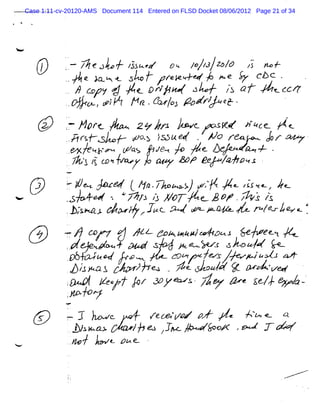 Case 1:11-cv-20120-AMS Document 114 Entered on FLSD Docket 08/06/2012 Page 21 of 34
① - The shot issued on 10/13/2010 is not
the same shot presented to me by CDC.
A copy of the original shot is at the CCM
Office, with Mr. Carlos Rodriguez.
② - More than 24 hrs have passed since the
first shot was issued. No reason for any
extension was given to the Defendant.
This is contrary to any BOP Regulations
③ - When faced (Mr. Thomas) with the issue, he
stated: "This is NOT the BOP. This is
Dismas charity, Inc and we make the rules here".
④ - A copy of ALL communications between the
defendant and staff members should be
obtained from the computers/terminals at
Dismas charities. The should be archived
and kept for 30 years. They are self expla-
natory
⑤ - I have not received at the time a
Dismas Charities, Inc Handbook and I did
not have one.